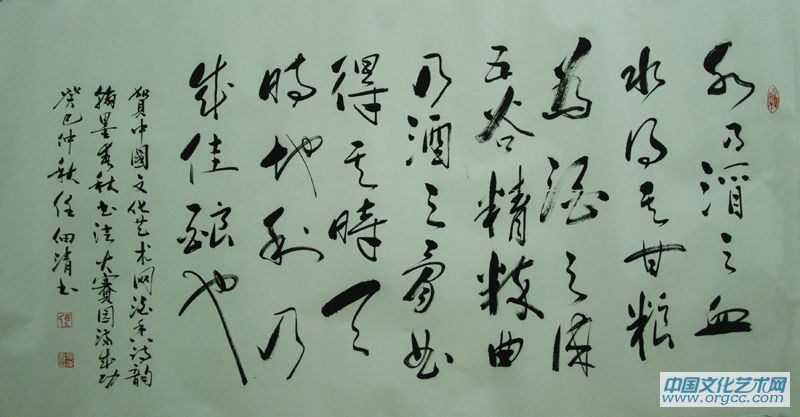 水乃酒之血
水得其甘粮
為酒之体
五谷精粹曲
乃酒之骨
得其時天
時地利乃
成佳酿也
賀中國文化艺术网酒香诗韵
翰墨春秋书法大赛圆满成功
癸巳仲秋任佃清书
中国文化艺术网
www.orgcc.com